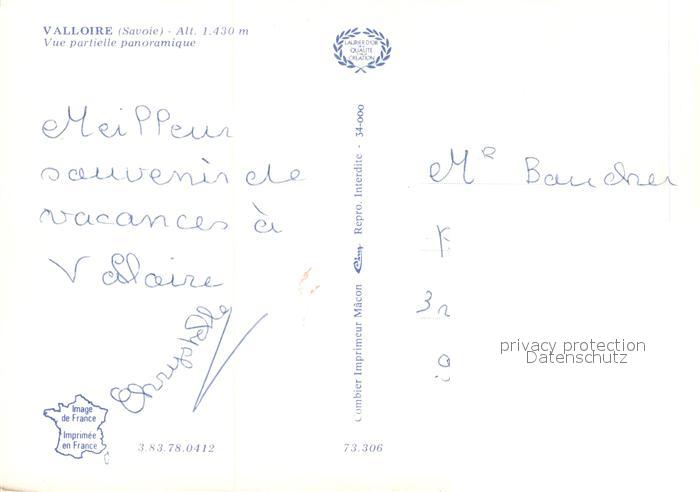 VALLOIRE (Savoie) - Alt. 1.430 m
Vue partielle panoramique
LAURIER D'OR
DE LA
QUALITÉ
CRÉATION
Meilleur
souvenir de
vacances à
Valloire
Chrystelle
Combier Imprimeur Mâcon Cim Repro. Interdite - 34-000
Me Baucher
privacy protection
Datenschutz
Image
de France
Imprimée
en France
3.83.78.0412
73.306